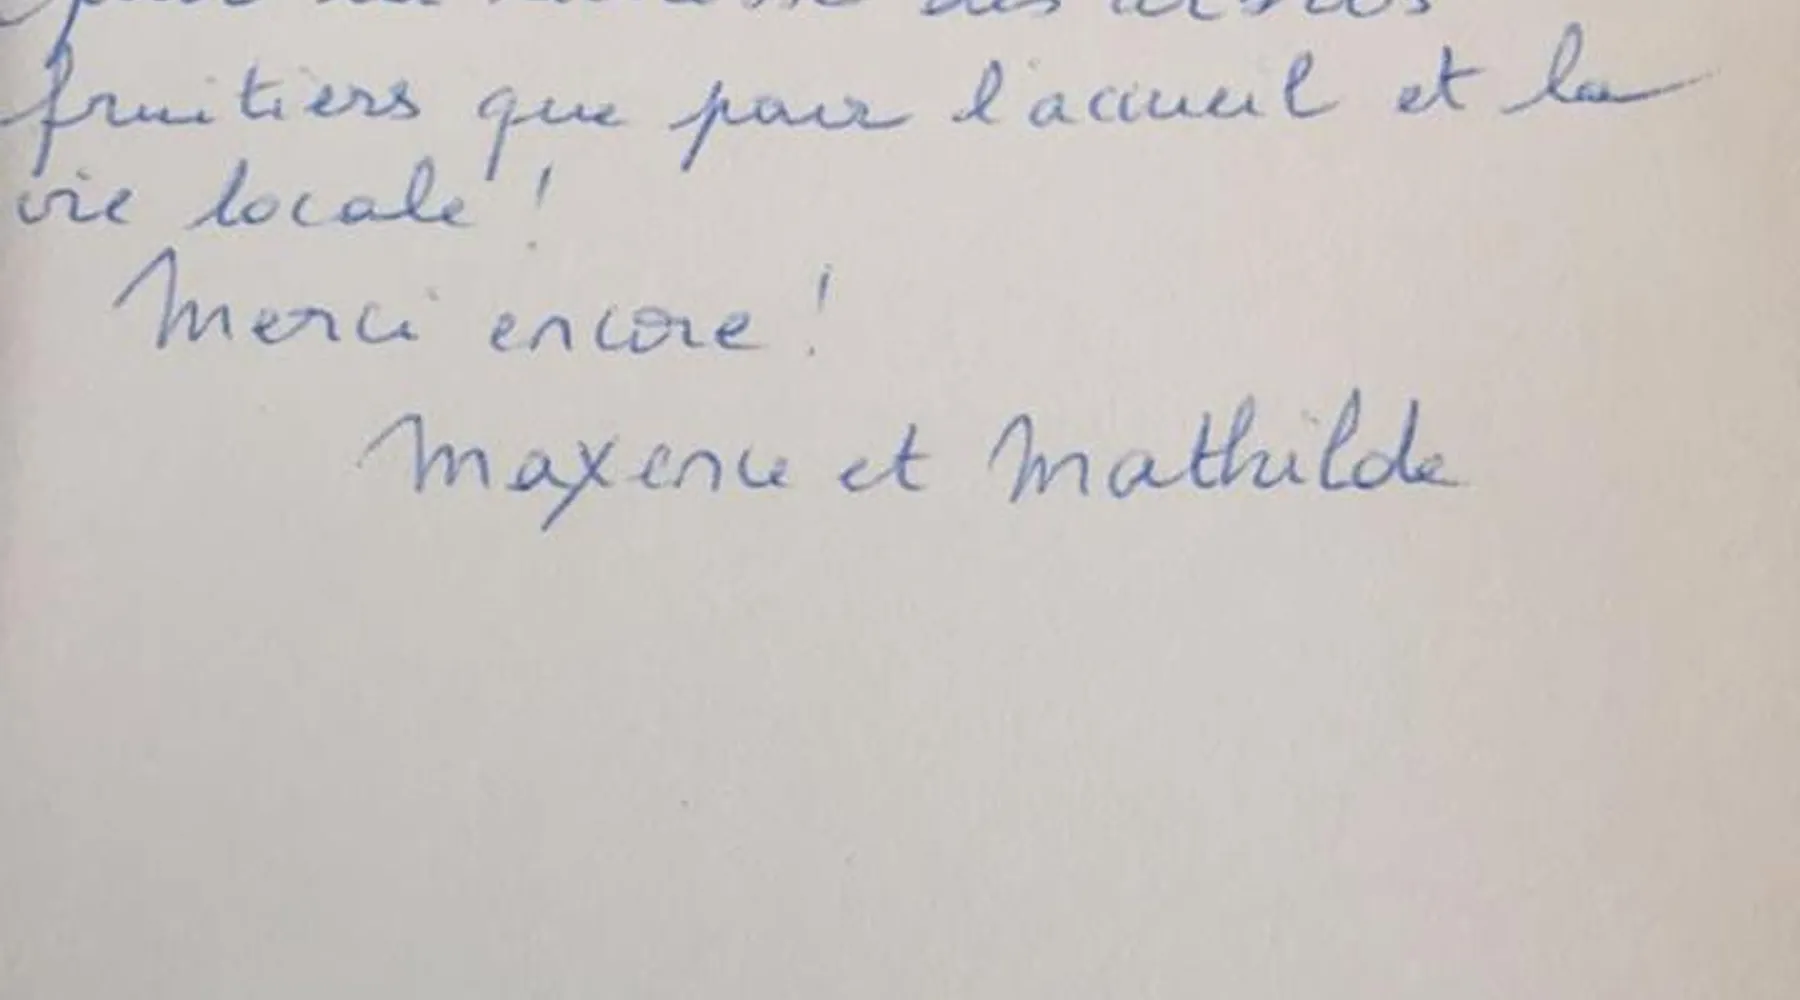 des arbres
fruitiers que pour l'accueil et la
vie locale !
Merci encore !
Maxence et Mathilde